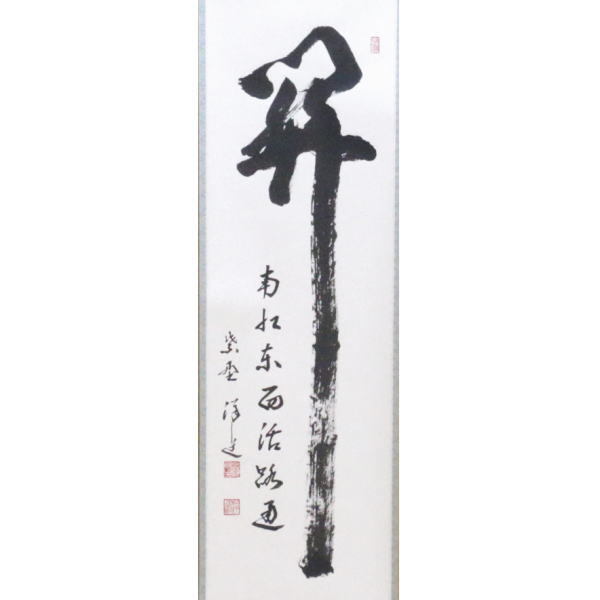 関
南北東西活路通
紫野